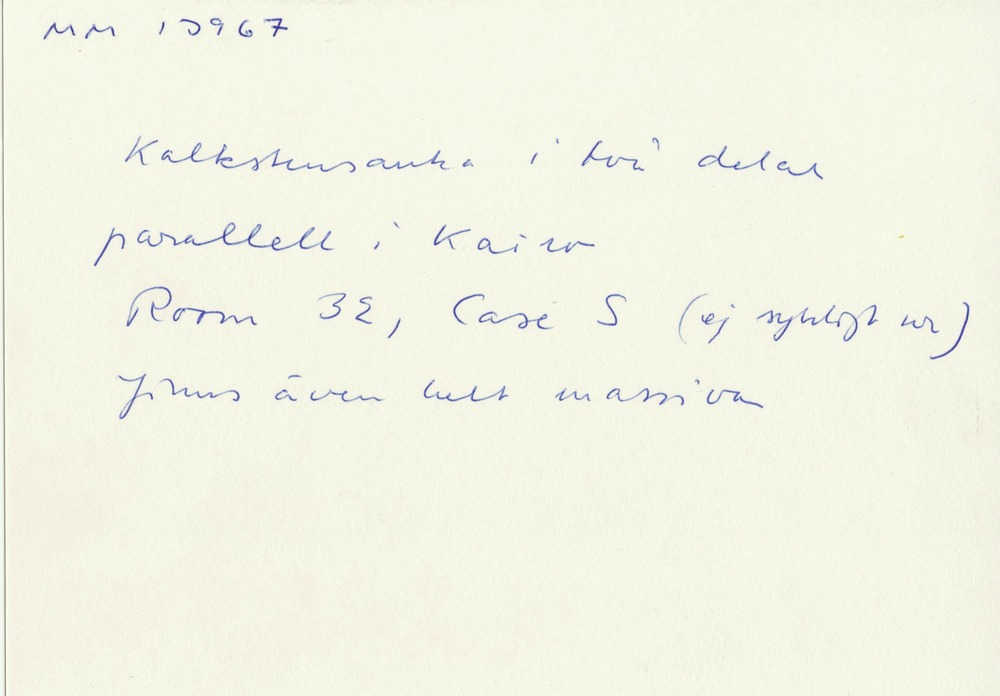 MM 13967
Kalkstensanka i två delar
parallell i Kairo
Room 32, Case S (ej synligt nr)
finns även helt massiva